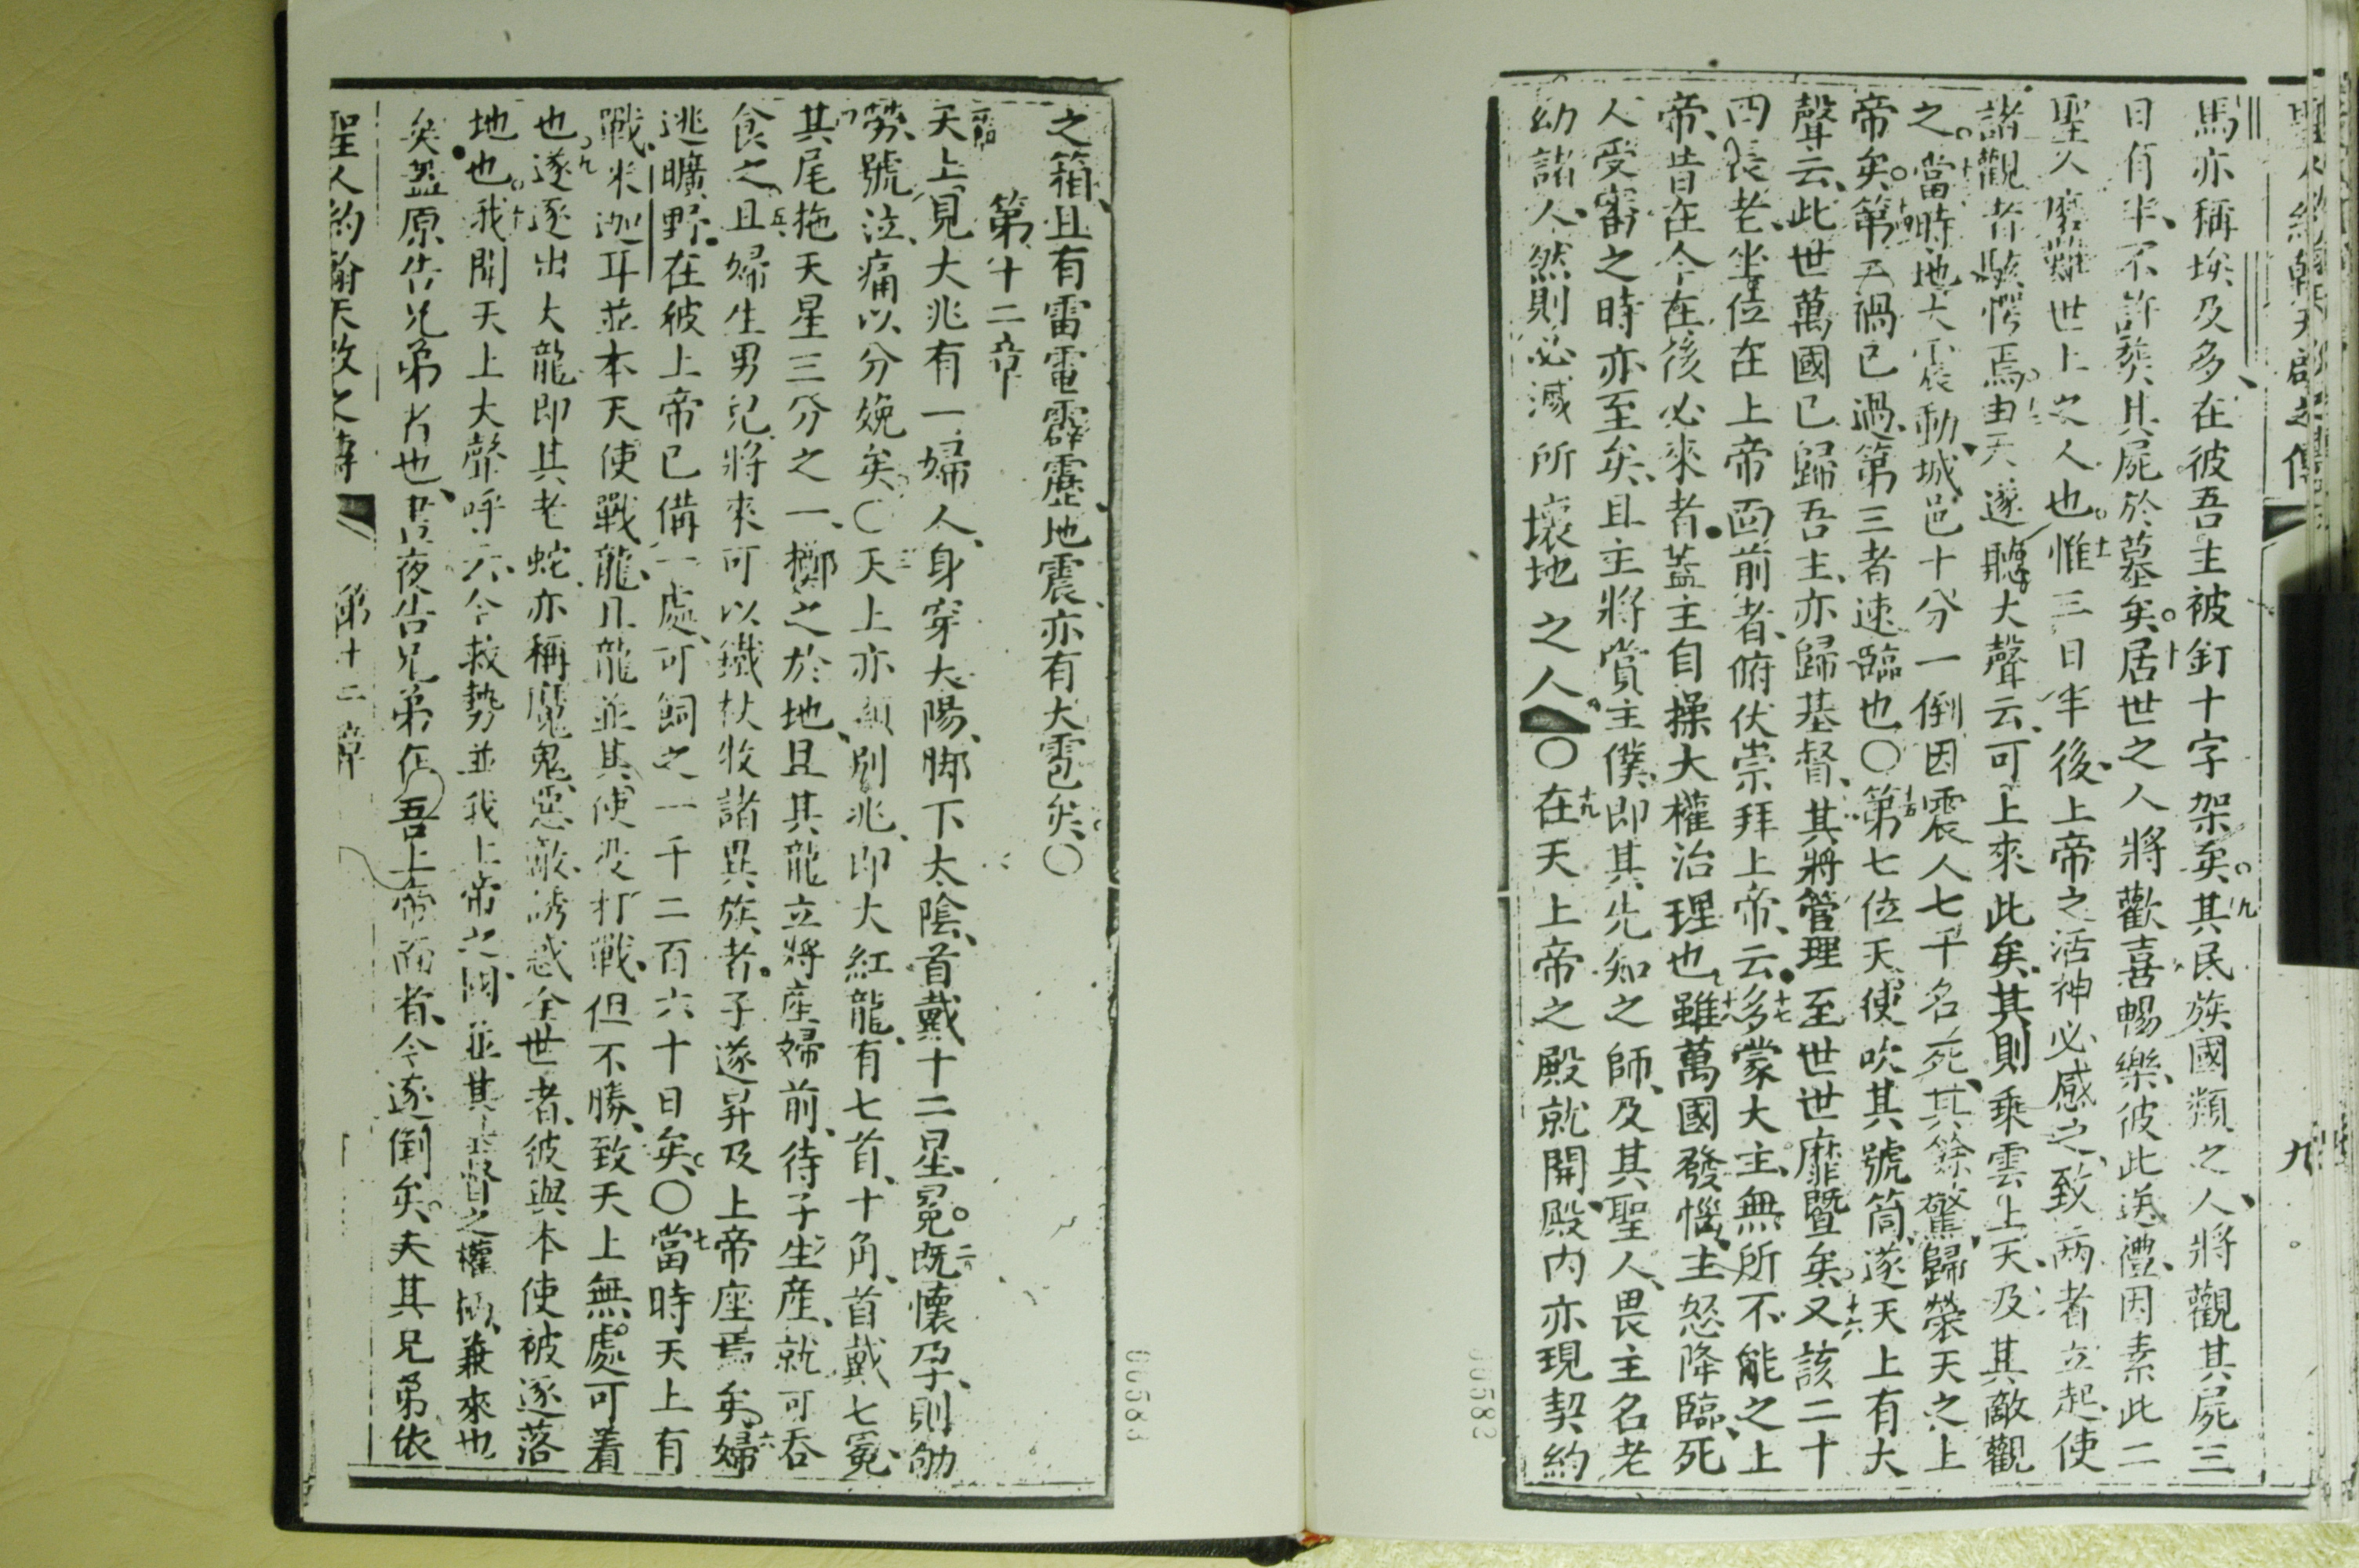 聖人約翰天啟之傳
九
馬亦稱埃及多在彼吾主被釘十字架矣九其民族國類之人將觀其屍三
日有半不許葬其屍於墓矣十居世之人將歡喜暢樂彼此送禮因素此二
聖人磨難世上之人也十一惟三日半後上帝之活神必感之致兩者立起使
諸觀者駭愕焉由天遂聽大聲云可上來此矣其則乘雲上天及其敵觀
之當時地大震動城邑十分一倒因震人七千名死其餘驚歸榮天之上
帝矣第二禍已過第三者速臨也〇十五第七位天使吹其號筒遂天上有大
聲云此世萬國已歸吾主亦歸基督其將管理至世世靡曁矣十六又該二十
四長老坐位在上帝面前者俯伏崇拜上帝云十七多蒙大主無所不能之上
帝昔在今在後必來者蓋主自操大權治理也十八雖萬國發惱主怒降臨死
人受審之時亦至矣且主將賞主僕即其先知之師及其聖人畏主名老
幼諸人然則必滅所壞地之人〇十九在天上帝之殿就開殿內亦現契約
00582
之箱且有雷電霹靂地震亦有大雹矣〇
第十二章
天上見大兆有一婦人身穿太陽脚下太陰首戴十二星冕二既懷孕則劬
勞號泣痛以分娩矣〇三天上亦顯別兆即大紅龍有七首十角首戴七冕
其尾拖天星三分之一擲之於地且其龍立將產婦前待子生產就可吞
食之五且婦生男兒將來可以鐵杖牧諸異族者子遂昇及上帝座焉矣六婦
逃曠野在彼上帝已備一處可飼之一千二百六十日矣〇七當時天上有
戰米迦耳並本天使戰龍且龍並其使役打戰但不勝致天上無處可着
也九遂逐出大龍即其老蛇亦稱魔鬼惡敵誘惑全世者彼與本使被逐落
地也十我聞天上大聲呼云今救勢並我上帝之國並其基督之權柄兼來也
矣蓋原告兄弟者也晝夜告兄弟在吾上帝面者今逐倒矣夫其兄弟依
聖人約翰天啟之傳 第十二章
00583